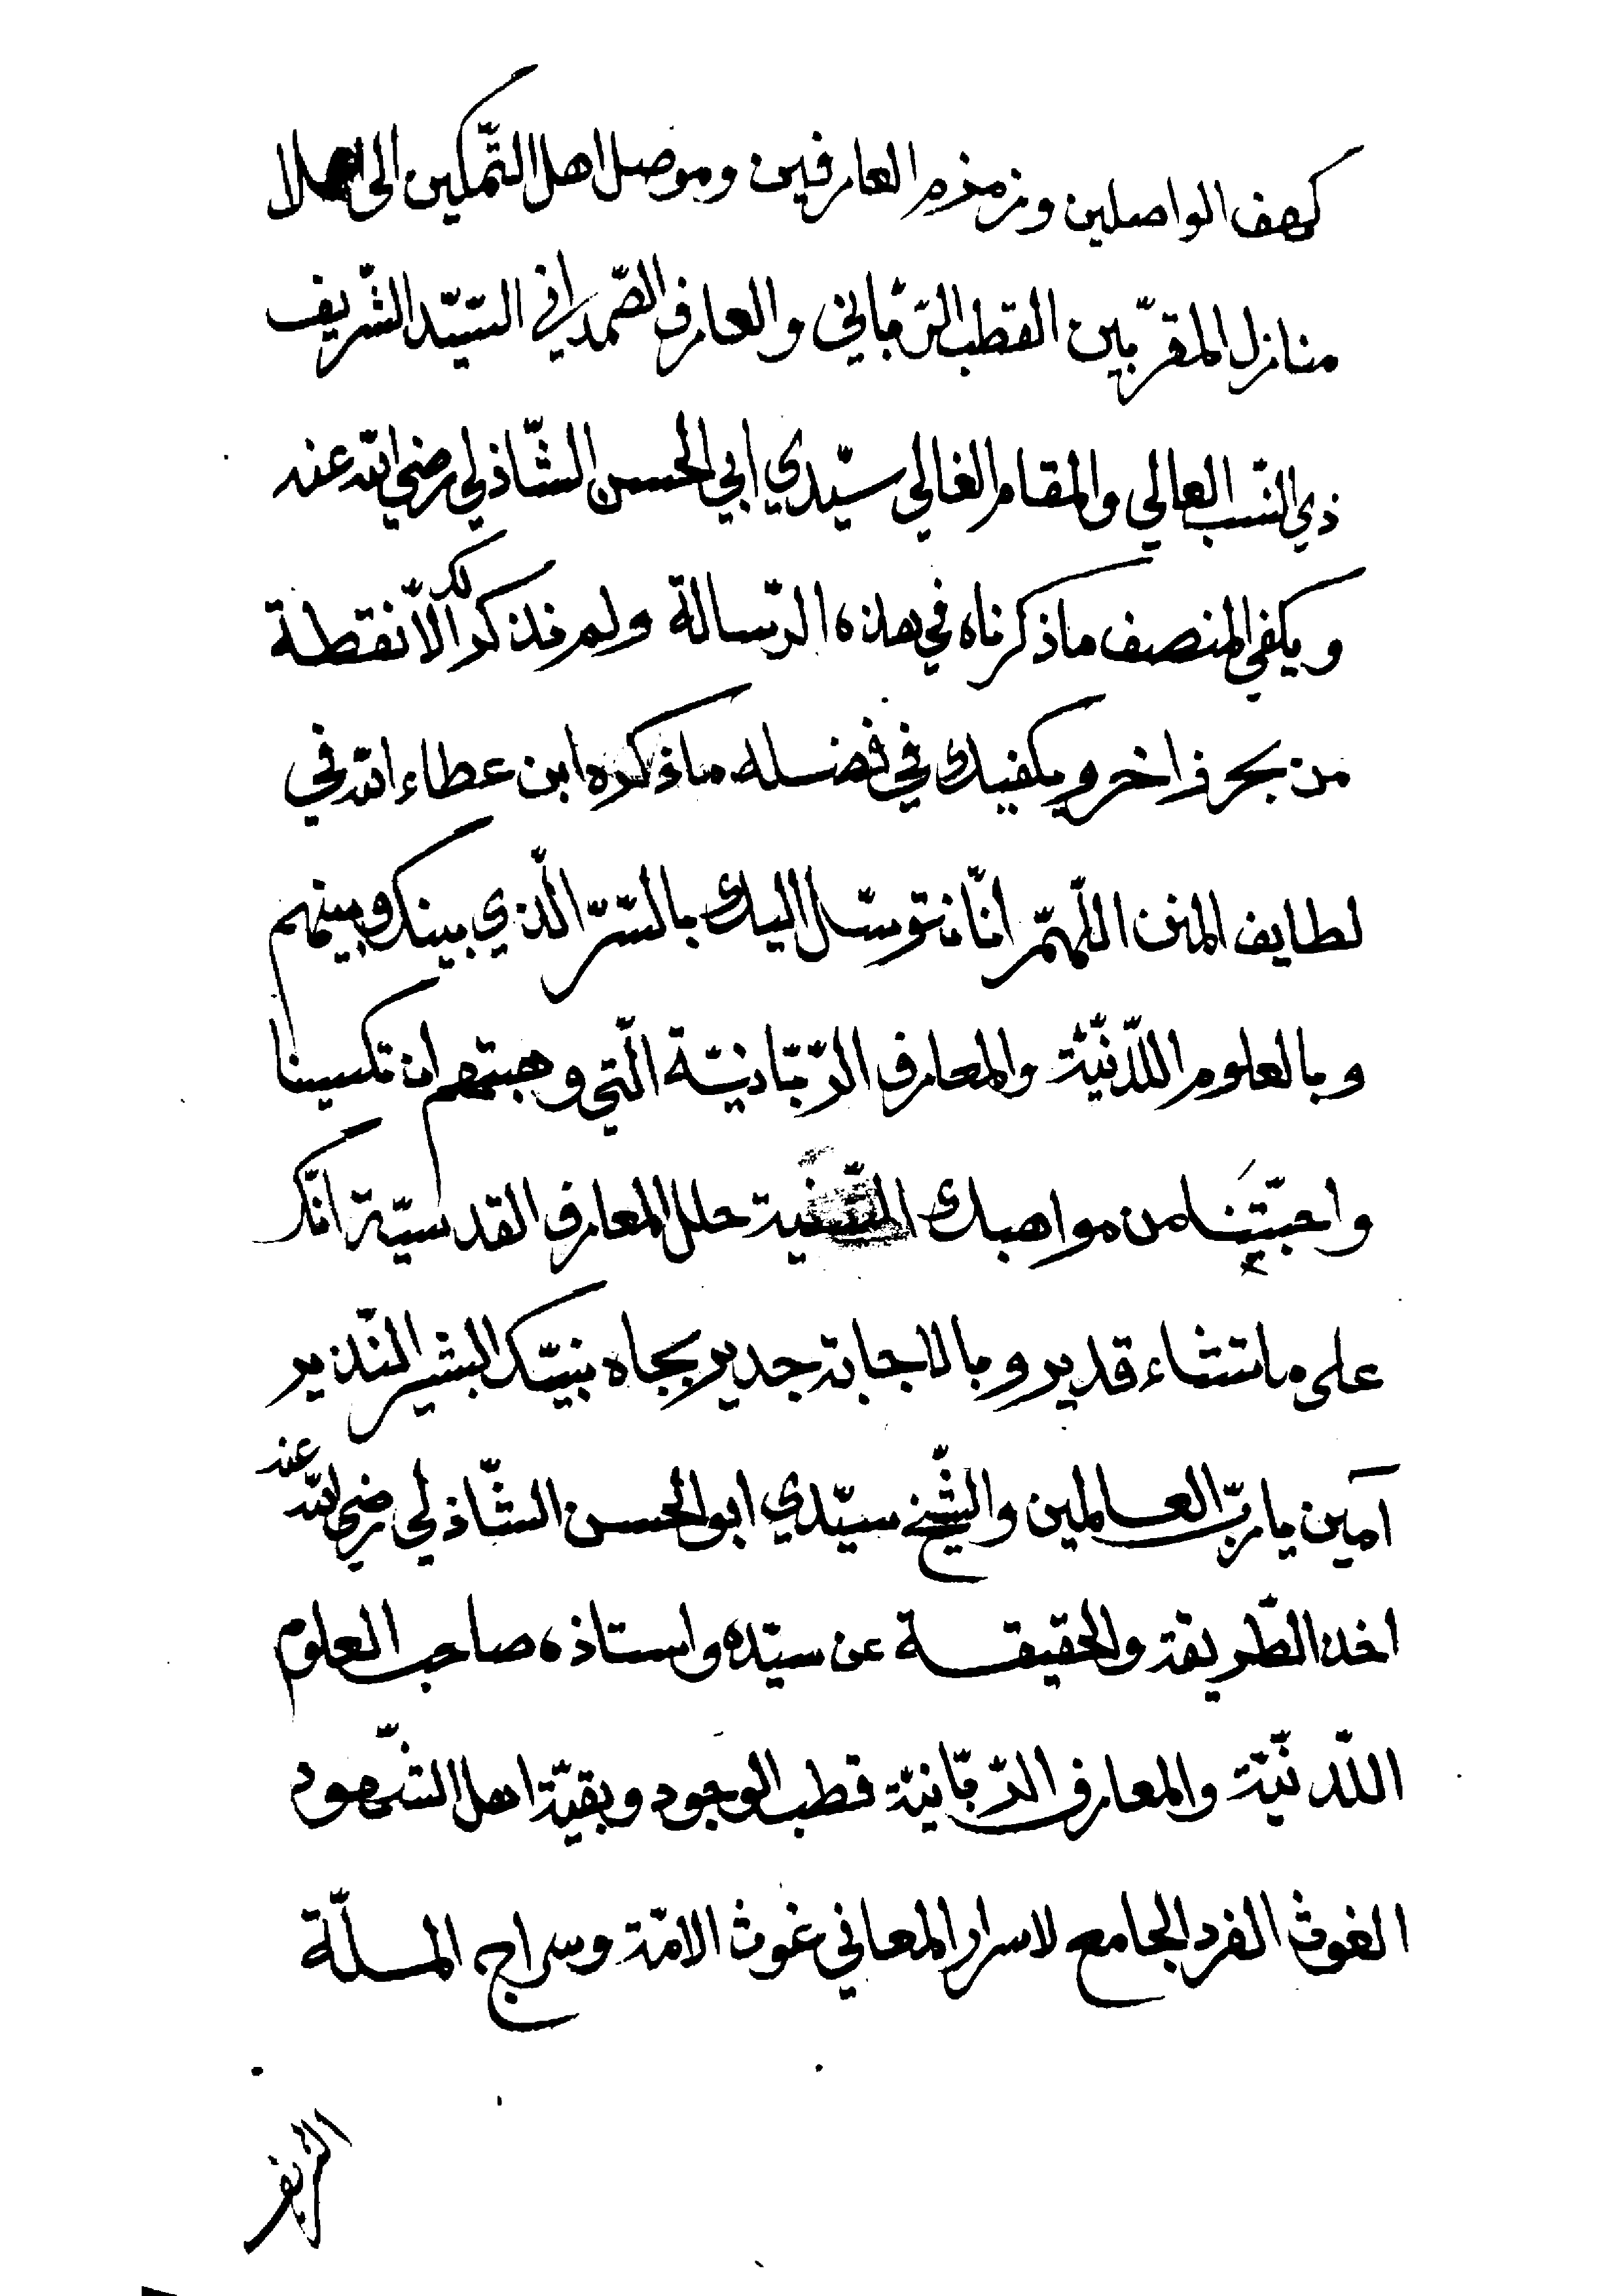 كهف الواصلين وزمزم العارفين وموصل اهل التّمكين الى
منازل المقرّبين القطب الرّبّاني والعارف الصّمداني السّيّد الشّريف
ذي النّسب العالي والمقام الغالي سيّدي ابي الحسن الشّاذلي رضي الله عنه
ويكفي المنصف ما ذكرناه في هذه الرّسالة ولم نذكر لك الاّ نقطة
من بحر زاخر ويكفيك في فضله ما ذكره ابن عطاء الله في
لطايف المنن اللّهمّ انّا نتوسّل اليك بالسّرّ الّذي بينك وبينهم
وبالعلوم اللّدنّيّة والمعارف الرّبّانيّة الّتي وهبتهم ان تكسينا
واحبّتنا من مواهبك السّنية حلل المعارف القدسيّة انّك
على ما تشاء قدير وبالاجابة جدير بجاه نبيّك البشير النّذير
آمين يا ربّ العالمين والشّيخ سيّدي ابو الحسن الشّاذلي رضي الله عنه
اخذ الطّريقة والحقيقة عن سيّده واستاذه صاحب العلوم
اللّدنّيّة والمعارف الرّبّانيّة قطب الوجود وبقيّة اهل الشّهود
الغوث الفرد الجامع لاسرار المعاني غوث الامّة وسراج الملّة